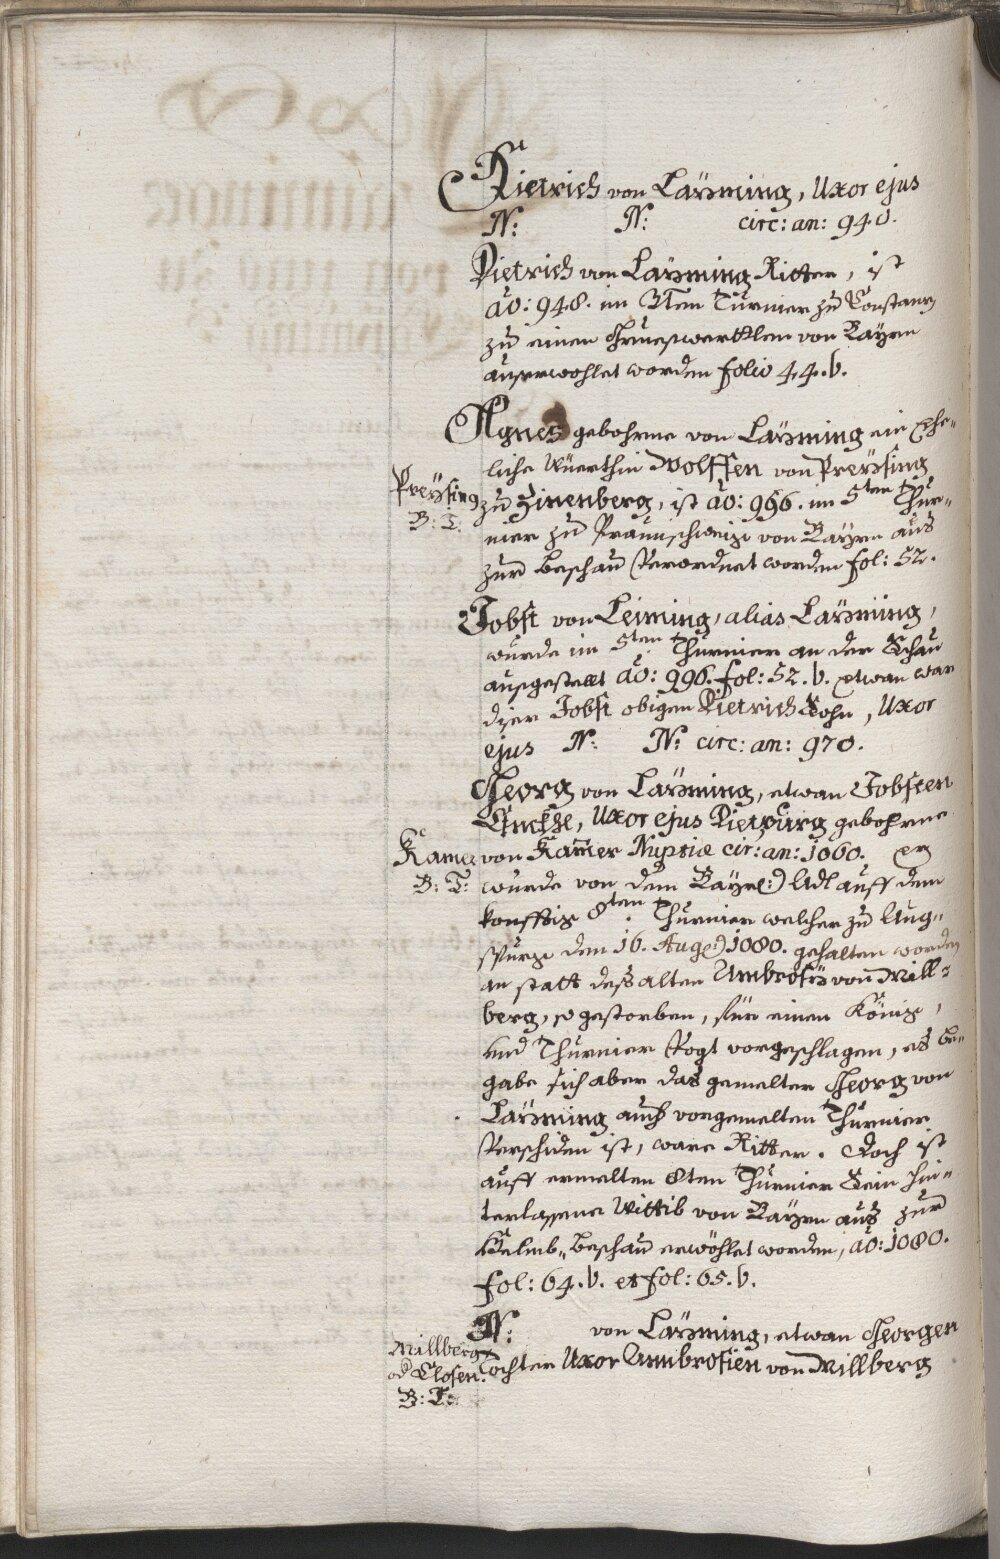 Dietrich von Laÿming, Uxor ejus
N: N: circ: an: 940.
Dietrich von Laÿming Ritter, ist
aō: 948. im 3ten Turnier zu Constanz
zu einen von Bayrn
auserwöhlet worden folio 44.b.
Agnes gebohrne von Laÿming ein Ehe-
liche Würthin Wolffen von Preÿsing
Preÿsing
B: T:
zu Zinenberg, ist aō: 996. im 5ten Thur-
nier zu Braunschweig von Bayrn aus
zur beschau Verordnet worden fol: 52.
Jobst von Leiming, alias Laÿming,
wurde im 5ten Thurnier an der Schau
ausgestelt aō: 996. fol: 52.b. etwan war
diser Jobst obigen Dietrich Sohn, Uxor
ejus N: N: circ: an: 970.
Georg von Laÿming, etwan Jobsten
Enckhl, Uxor ejus gebohrne
Kamer
B: T:
von Kam̄er Nuptiæ cir: an: 1060. er
wurde von dem Bayr(:) Adl auff dem
8ten Thurnier welcher zu Aug-
spurg den 16. Aug(:) 1080. gehalten worden
an statt dess alten Ambrosÿ von Mill-
berg, so gestorben, für einen König,
und Thurnier Vogt vorgeschlagen, es be-
gabe sich aber das gemelter Georg von
Laÿming auch vorgemelten Thurnier
Verschiden ist, ware Ritter. Doch ist
auff ermelten 8ten Thurnier Sein hin-
terlassene Wittib von Bayrn aus zur
Helmb-beschau erwöhlet worden, aō: 1080.
fol: 64.b. et fol: 65.b.
N: von Laÿming, etwan Georgen
Millberg
od Closen.
B: T:
Tochter Uxor Ambrosien von Millberg